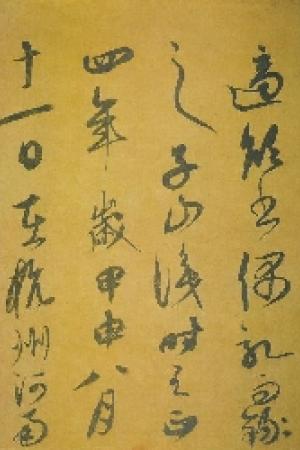 適欲書偶而錄
之子山識時至正
四年歲甲申八月
十一日在杭州河南